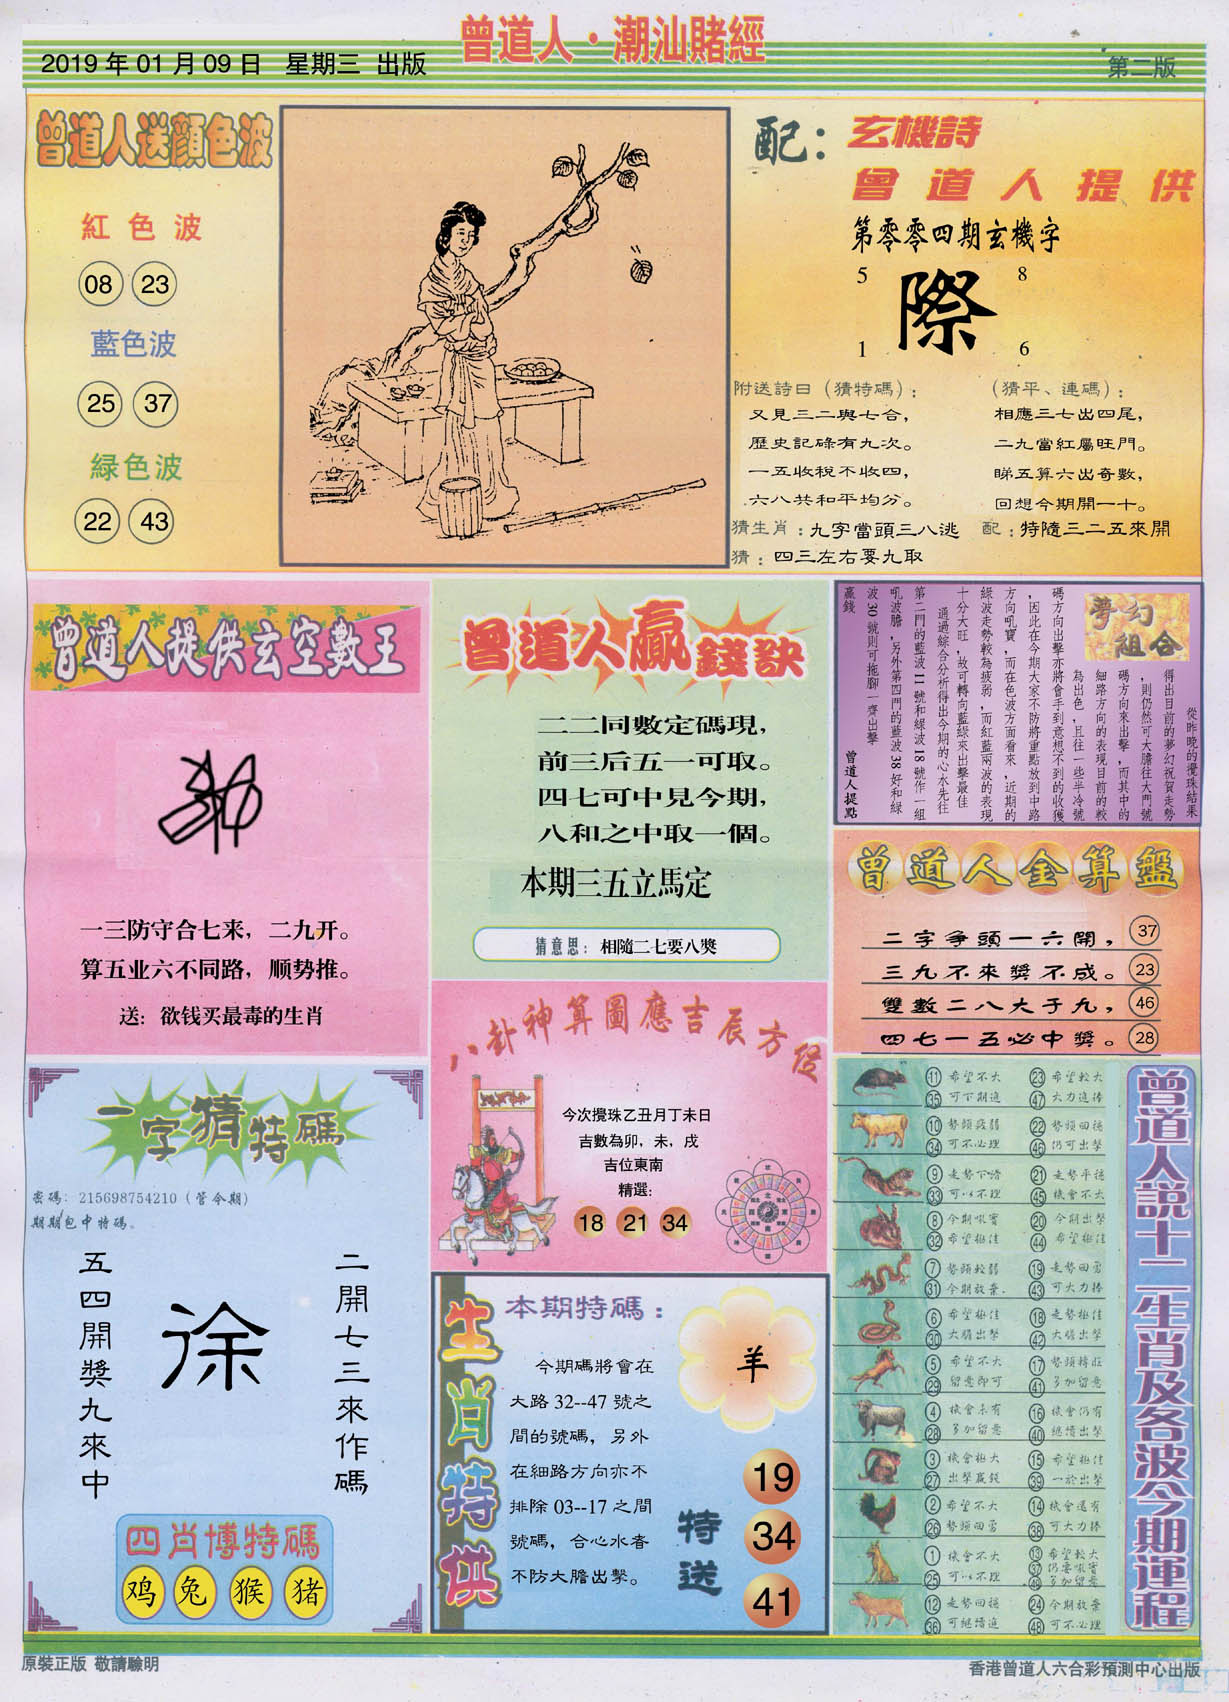 曾道人·潮汕賭經
2019年01月09日 星期三 出版
第二版
曾道人送顏色波
紅色波
08 23
藍色波
25 37
緑色波
22 43
配：玄機詩
曾道人提供
第零零四期玄機字
5 8
際
1 6
附送詩曰（猜特碼）：
又見三二與七合，
歷史記碌有九次。
一五收稅不收四，
六八共和平均分。
（猜平、連碼）：
相應三七出四尾，
二九當紅屬旺門。
睇五算六出奇數，
回想今期開一十。
猜生肖：九字當頭三八逃 配：特隨三二五來開
猜：四三左右要九取
曾道人提供玄空數王
一三防守合七来，二九开。
算五业六不同路，顺势推。
送：欲钱买最毒的生肖
曾道人贏錢訣
二二同數定碼現，
前三后五一可取。
四七可中見今期，
八和之中取一個。
本期三五立馬定
猜意思：相隨二七要八獎
夢幻
組合
從昨晚的攪珠結果
得出目前的夢幻祝賀走勢
，則仍然可大膽往大門號
碼方向來出擊，而其中的
細路方向的表現目前的較
為出色，且往一些半冷號
碼方向出擊亦將會手到意想不到的收獲
，因此在今期大家不防將重點放到中路
方向吼寶，而在色波方面看來，近期的
綠波走勢較為疲弱，而紅藍兩波的表現
十分大旺，故可轉向藍綠來出擊最佳
通過綜合分析得出今期的心水先往
第二門的藍波11號和綠波18號作一組
吼波膽，另外第四門的藍波38好和綠
波30號則可拖腳一齊出擊
贏錢
曾道人提點
曾道人金算盤
二字争頭一六開， 37
三九不來獎不成。 23
雙數二八大于九， 46
四七一五必中獎。 28
一字猜特碼
密碼：215698754210（管今期）
期期包中特碼。
二開七三來作碼
徐
五四開獎九來中
四肖博特碼
鸡 兔 猴 猪
八卦神算圖應吉辰方位
今次攪珠乙丑月丁未日
吉數為卯，未，戌
吉位東南
精選：
18 21 34
生肖特供
本期特碼：
今期碼將會在
大路32--47號之
間的號碼，另外
在細路方向亦不
排除03--17之間
號碼，合心水者
不防大膽出擊。
羊
特送
19
34
41
曾道人説十二生肖及各波今期運程
11 希望不大 23 希望較大
35 可下期進 47 大力追捧
10 勢頭疲弱 22 勢頭回穩
34 可不必理 46 仍可出擊
9 走勢下滑 21 走勢平穩
33 可以不理 45 機會不大
8 今期吼實 20 今期出擊
32 希望極佳 44 希望極佳
7 勢頭較弱 19 走勢回勇
31 今期放棄 43 可大力捧
6 希望極佳 18 走勢極佳
30 大膽出擊 42 大膽出擊
5 希望不大 17 勢頭轉旺
29 留意即可 41 多加留意
4 機會未有 16 機會仍有
28 多加留意 40 繼續出擊
3 機會極大 15 希望極佳
27 出擊贏錢 39 一於出擊
2 希望不大 14 機會還有
26 勢頭回勇 38 可大力捧
1 機會不大 13 希望較大
25 可以不理 37 仍要吼實
49 多加留意
12 走勢回穩 24 今期放棄
36 可繼續追 48 可不必理
原裝正版 敬請驗明
香港曾道人六合彩預測中心出版